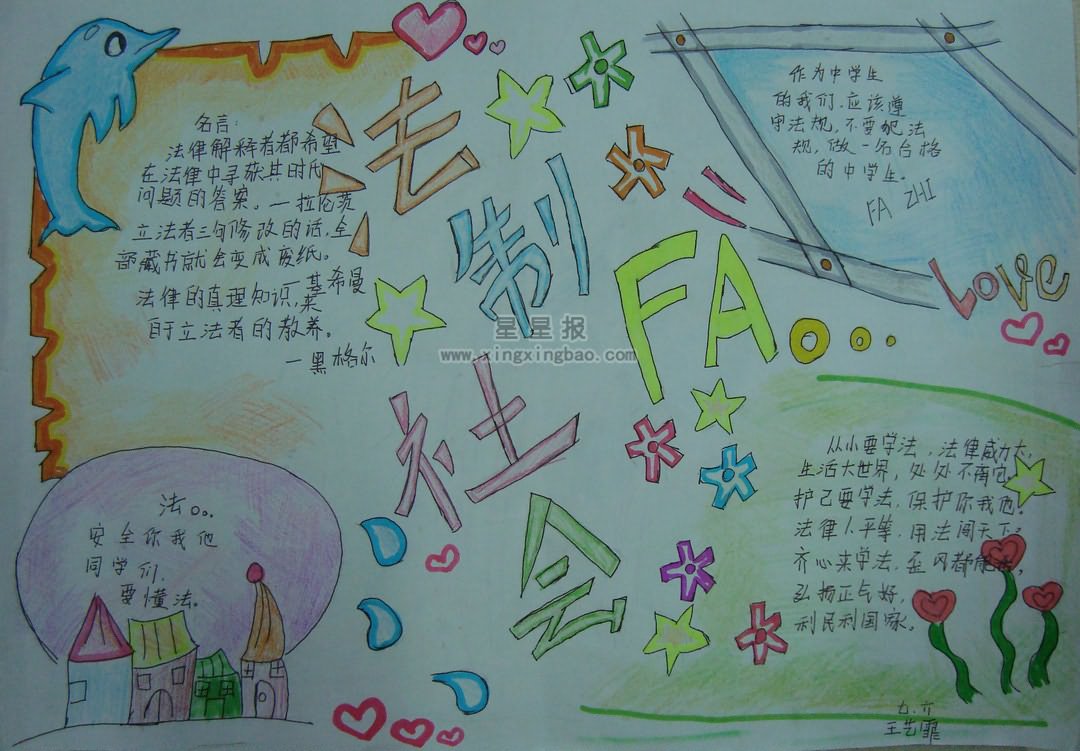 名言:
法律解释者都希望
在法律中寻获其时代
问题的答案。—拉伦茨
立法者三句修改的话,全
部藏书就会变成废纸。
—基希曼
法律的真理知识,来
自于立法者的教养。
—黑格尔
法制
社会
FA
作为中学生
的我们.应该遵
守法规,不要犯法
规,做一名合格
的中学生。
FA ZHI
Love
星星报
www.xingxingbao.com
法。。。
安全你我他
同学们,
要懂法。
从小要学法,法律威力大,
生活大世界,处处不离它。
护己要学法,保护你我他!
法律人平等,用法闯天下。
齐心来学法,歪风都能
弘扬正气好,
利民利国家。
九.六
王艺霏